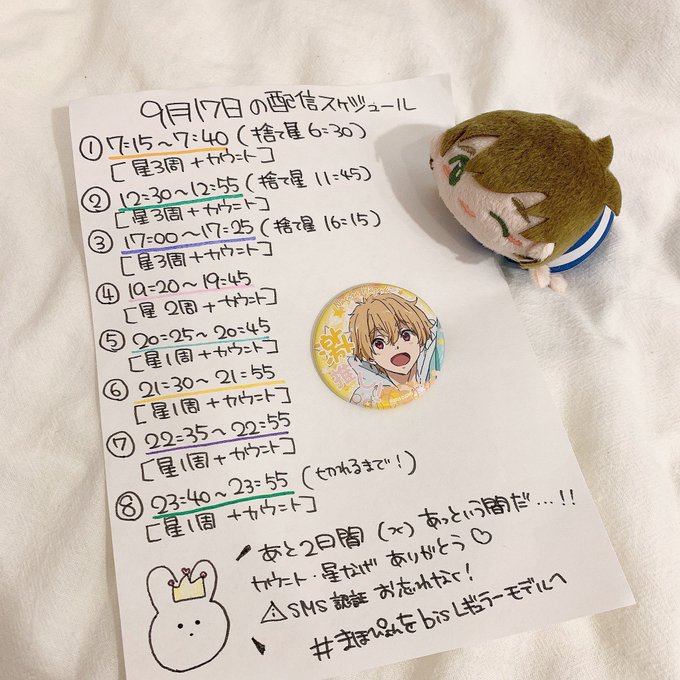 9月17日の配信スケジュール
① 7:15～7:40 (捨て星 6:30)
[星3周+カウント]
② 12:30～12:55 (捨て星 11:45)
[星3周+カウント]
③ 17:00～17:25 (捨て星 16:15)
[星3周+カウント]
④ 19:20～19:45
[星2周+カウント]
⑤ 20:25～20:45
[星1周+カウント]
⑥ 21:30～21:55
[星1周+カウント]
⑦ 22:35～22:55
[星1周+カウント]
⑧ 23:40～23:55 (せかれるまで!)
[星1周+カウント]
あと2日間 (;;) あっという間だ…!!
カウント・星なげ ありがとう♡
⚠SMS認証 お忘れなく!
#まほぴょんをbisレギュラーモデルへ